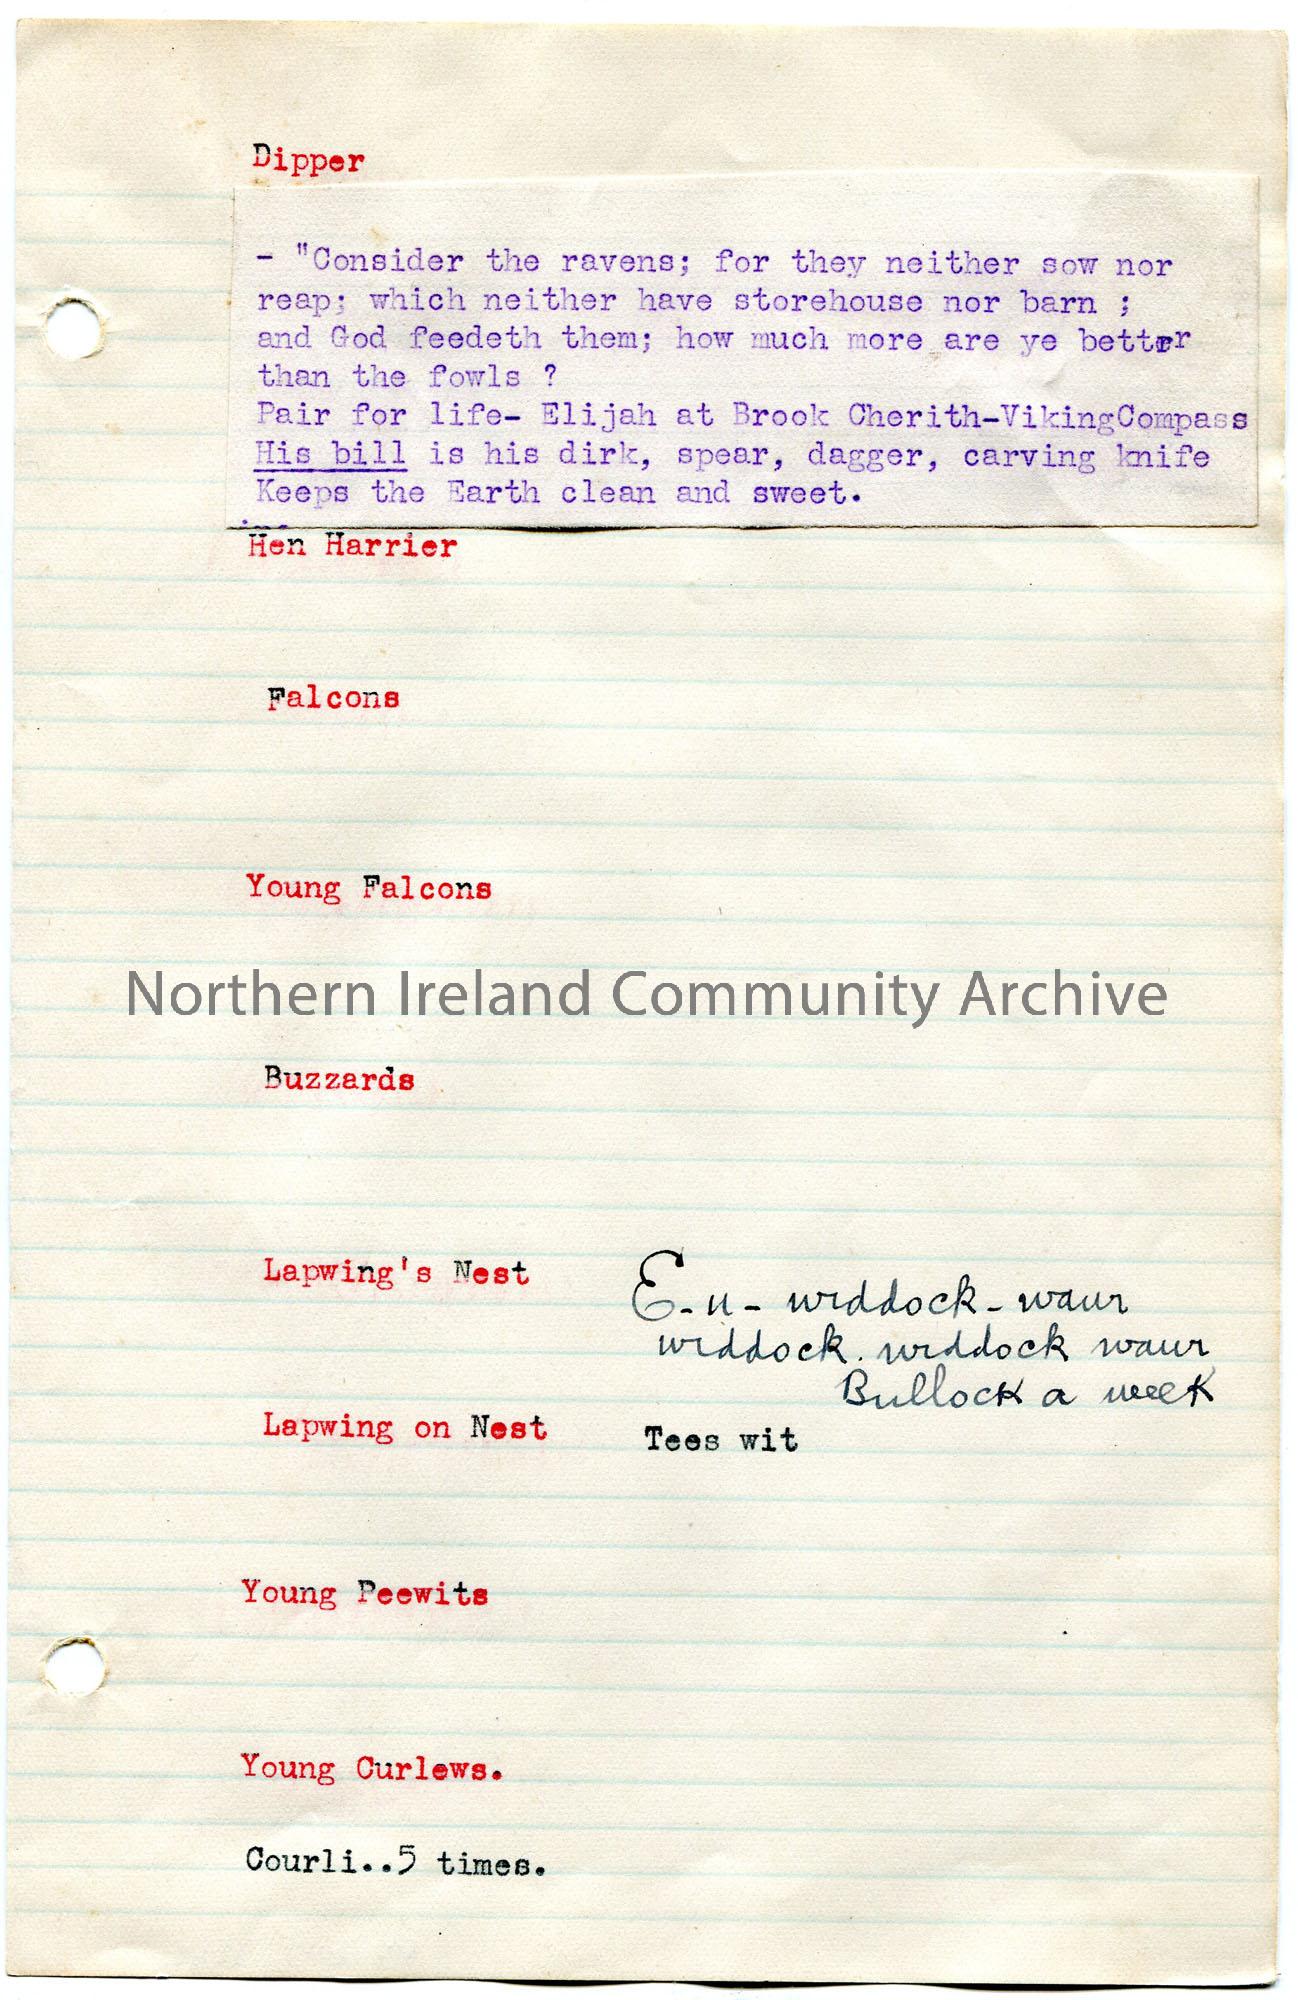 Dipper
- "Consider the ravens; for they neither sow nor
reap; which neither have storehouse nor barn ;
and God feedeth them; how much more are ye bettrr
than the fowls ?
Pair for life- Elijah at Brook Cherith-VikingCompass
His bill is his dirk, spear, dagger, carving knife
Keeps the Earth clean and sweet.
Hen Harrier
Falcons
Young Falcons
Northern Ireland Community Archive
Buzzards
Lapwing's Nest
E-u- widdock-waur
widdock. widdock waur
Bullock a week
Lapwing on Nest Tees wit
Young Peewits
Young Curlews.
Courli..5 times.